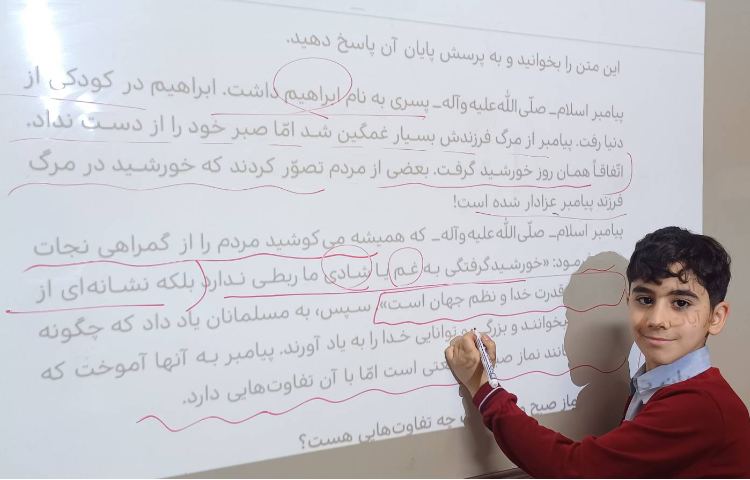 این متن را بخوانید و به پرسش پایان آن پاسخ دهید.
پیامبر اسلام_ صلّی‌الله‌علیه‌وآله_ پسری به نام ابراهیم داشت. ابراهیم در کودکی از
دنیا رفت. پیامبر از مرگ فرزندش بسیار غمگین شد امّا صبر خود را از دست نداد.
اتّفاقاً همان روز خورشید گرفت. بعضی از مردم تصوّر کردند که خورشید در مرگ
فرزند پیامبر عزادار شده است!
پیامبر اسلام_ صلّی‌الله‌علیه‌وآله_ که همیشه می‌کوشید مردم را از گمراهی نجات
«خورشیدگرفتگی به غم یا شادی ما ربطی ندارد بلکه نشانه‌ای از
قدرت خدا و نظم جهان است» سپس، به مسلمانان یاد داد که چگونه
بخوانند و توانایی خدا را به یاد آورند. پیامبر به آنها آموخت که
نماز است امّا با آن تفاوت‌هایی دارد.
نماز صبح و چه تفاوت‌هایی هست؟